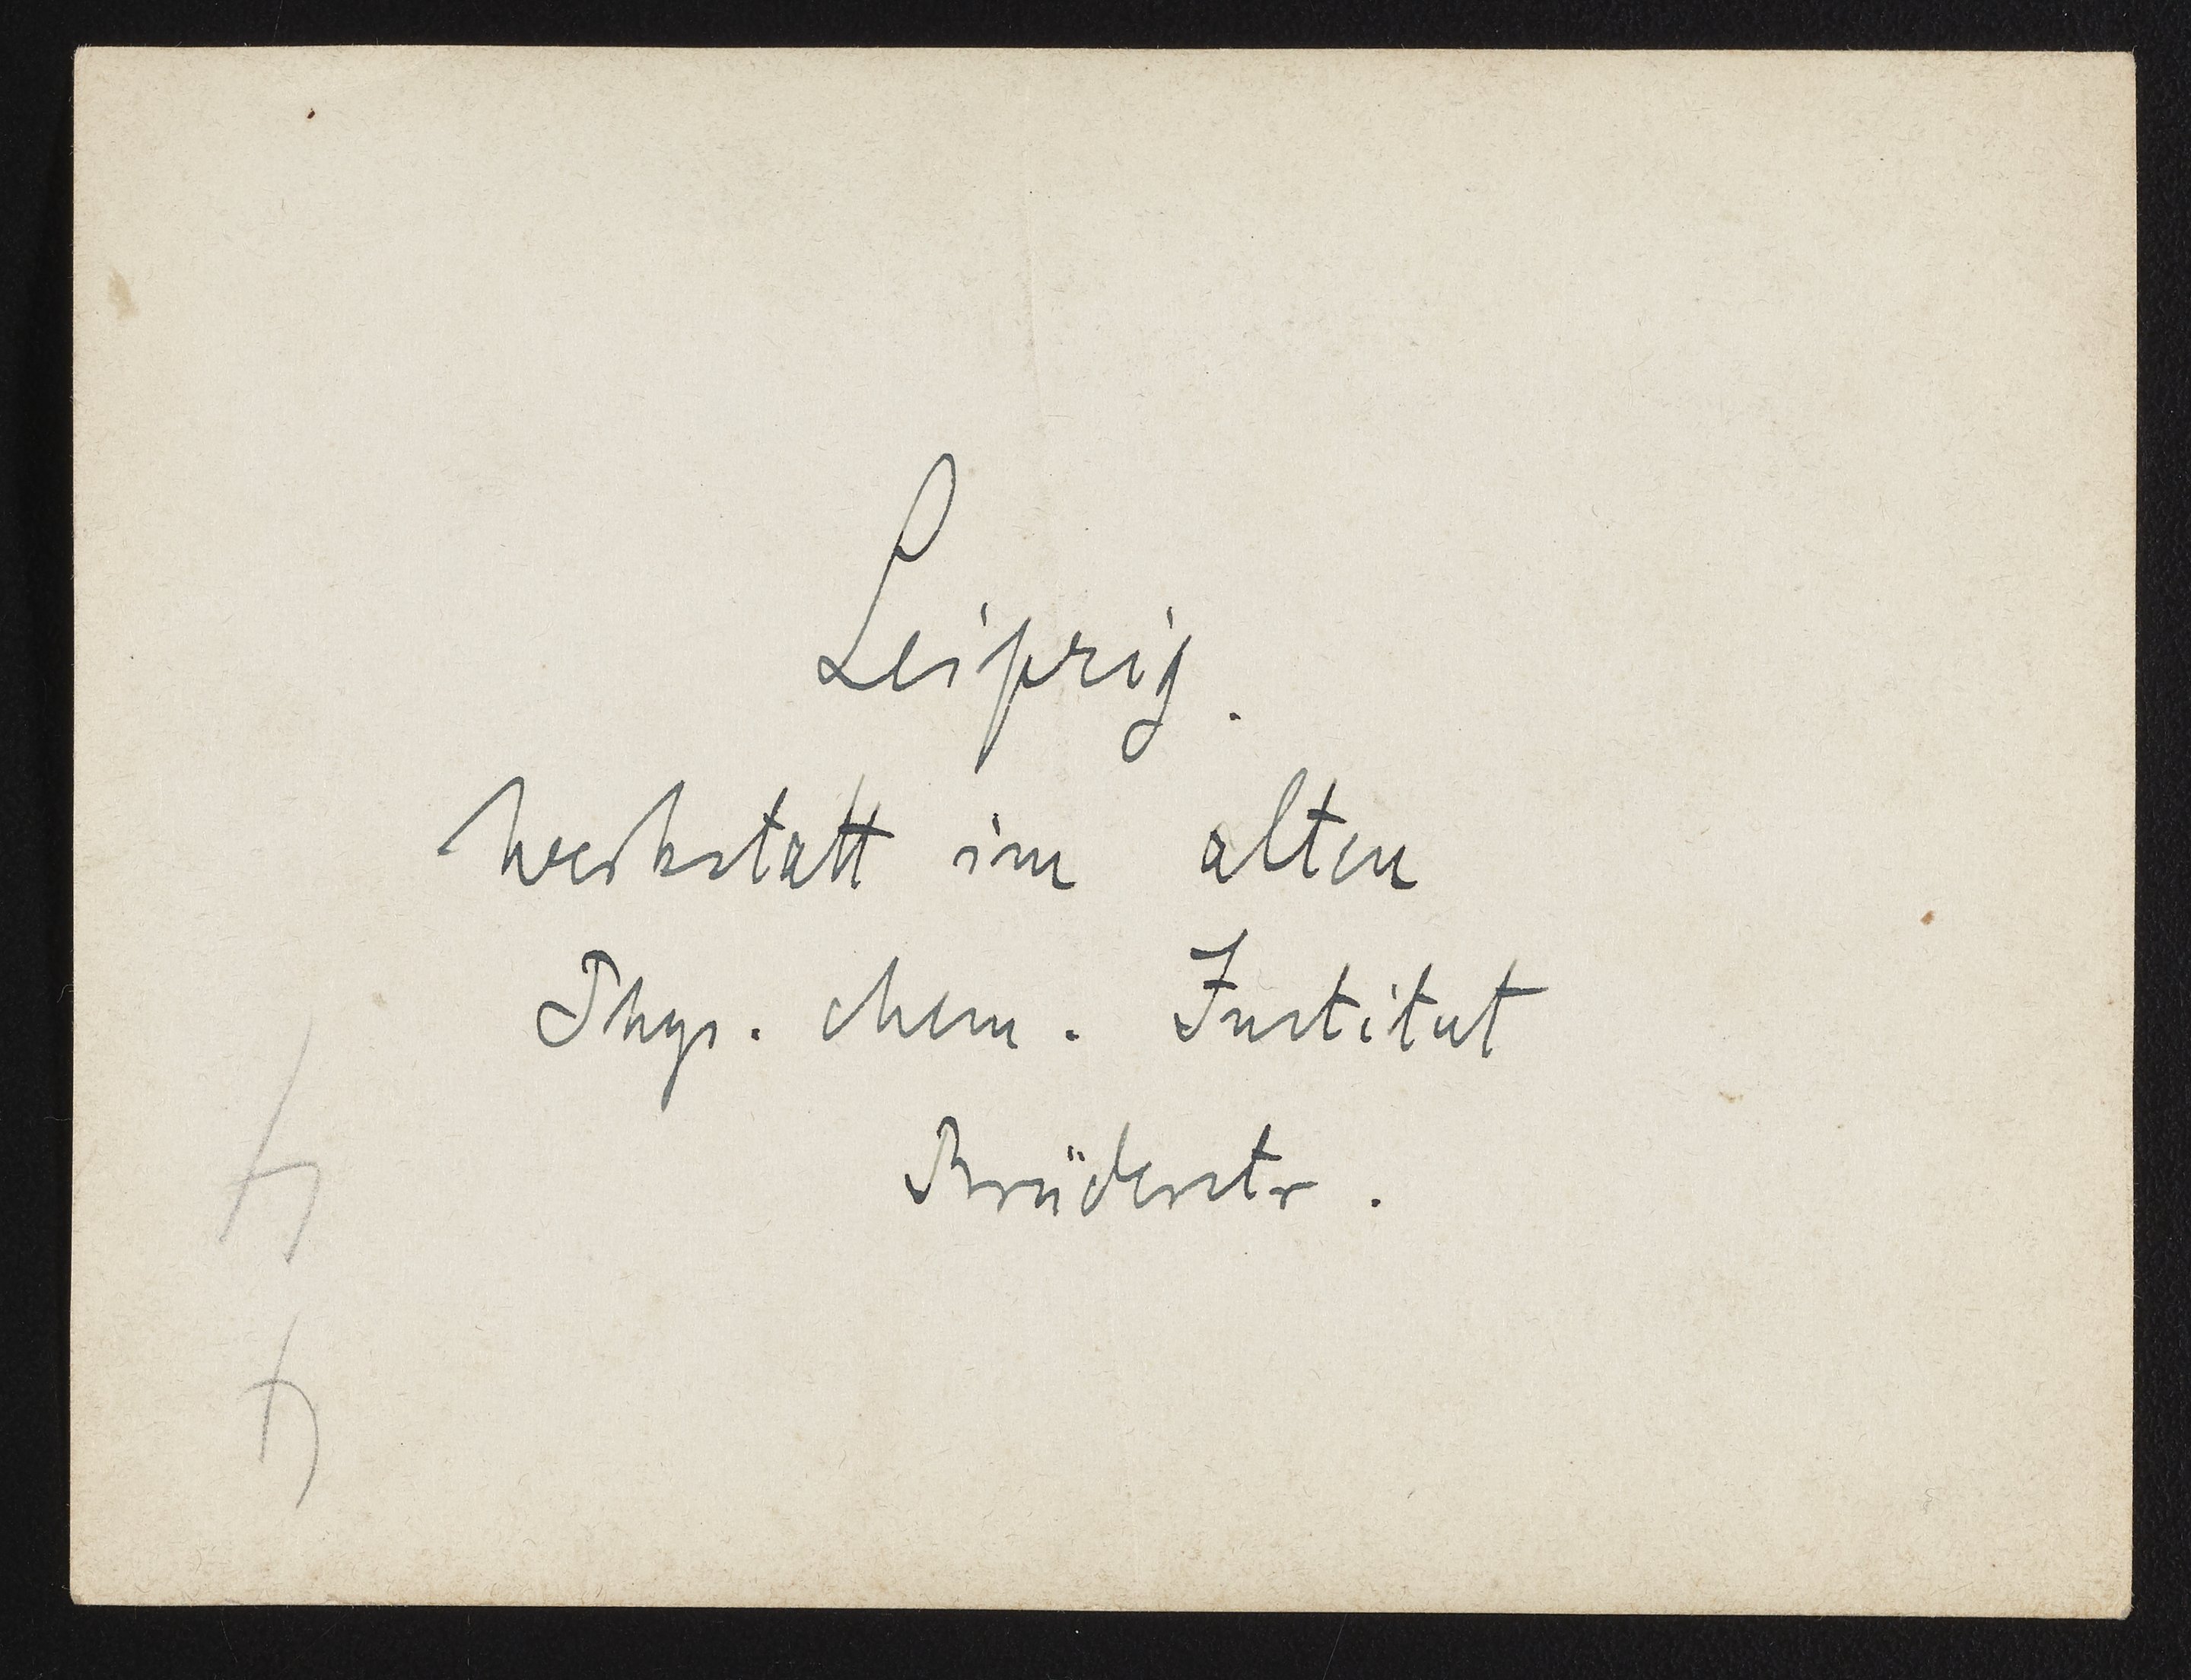 Leipzig.
Werkstatt im alten
Phys. chem. Institut
Brüderstr.